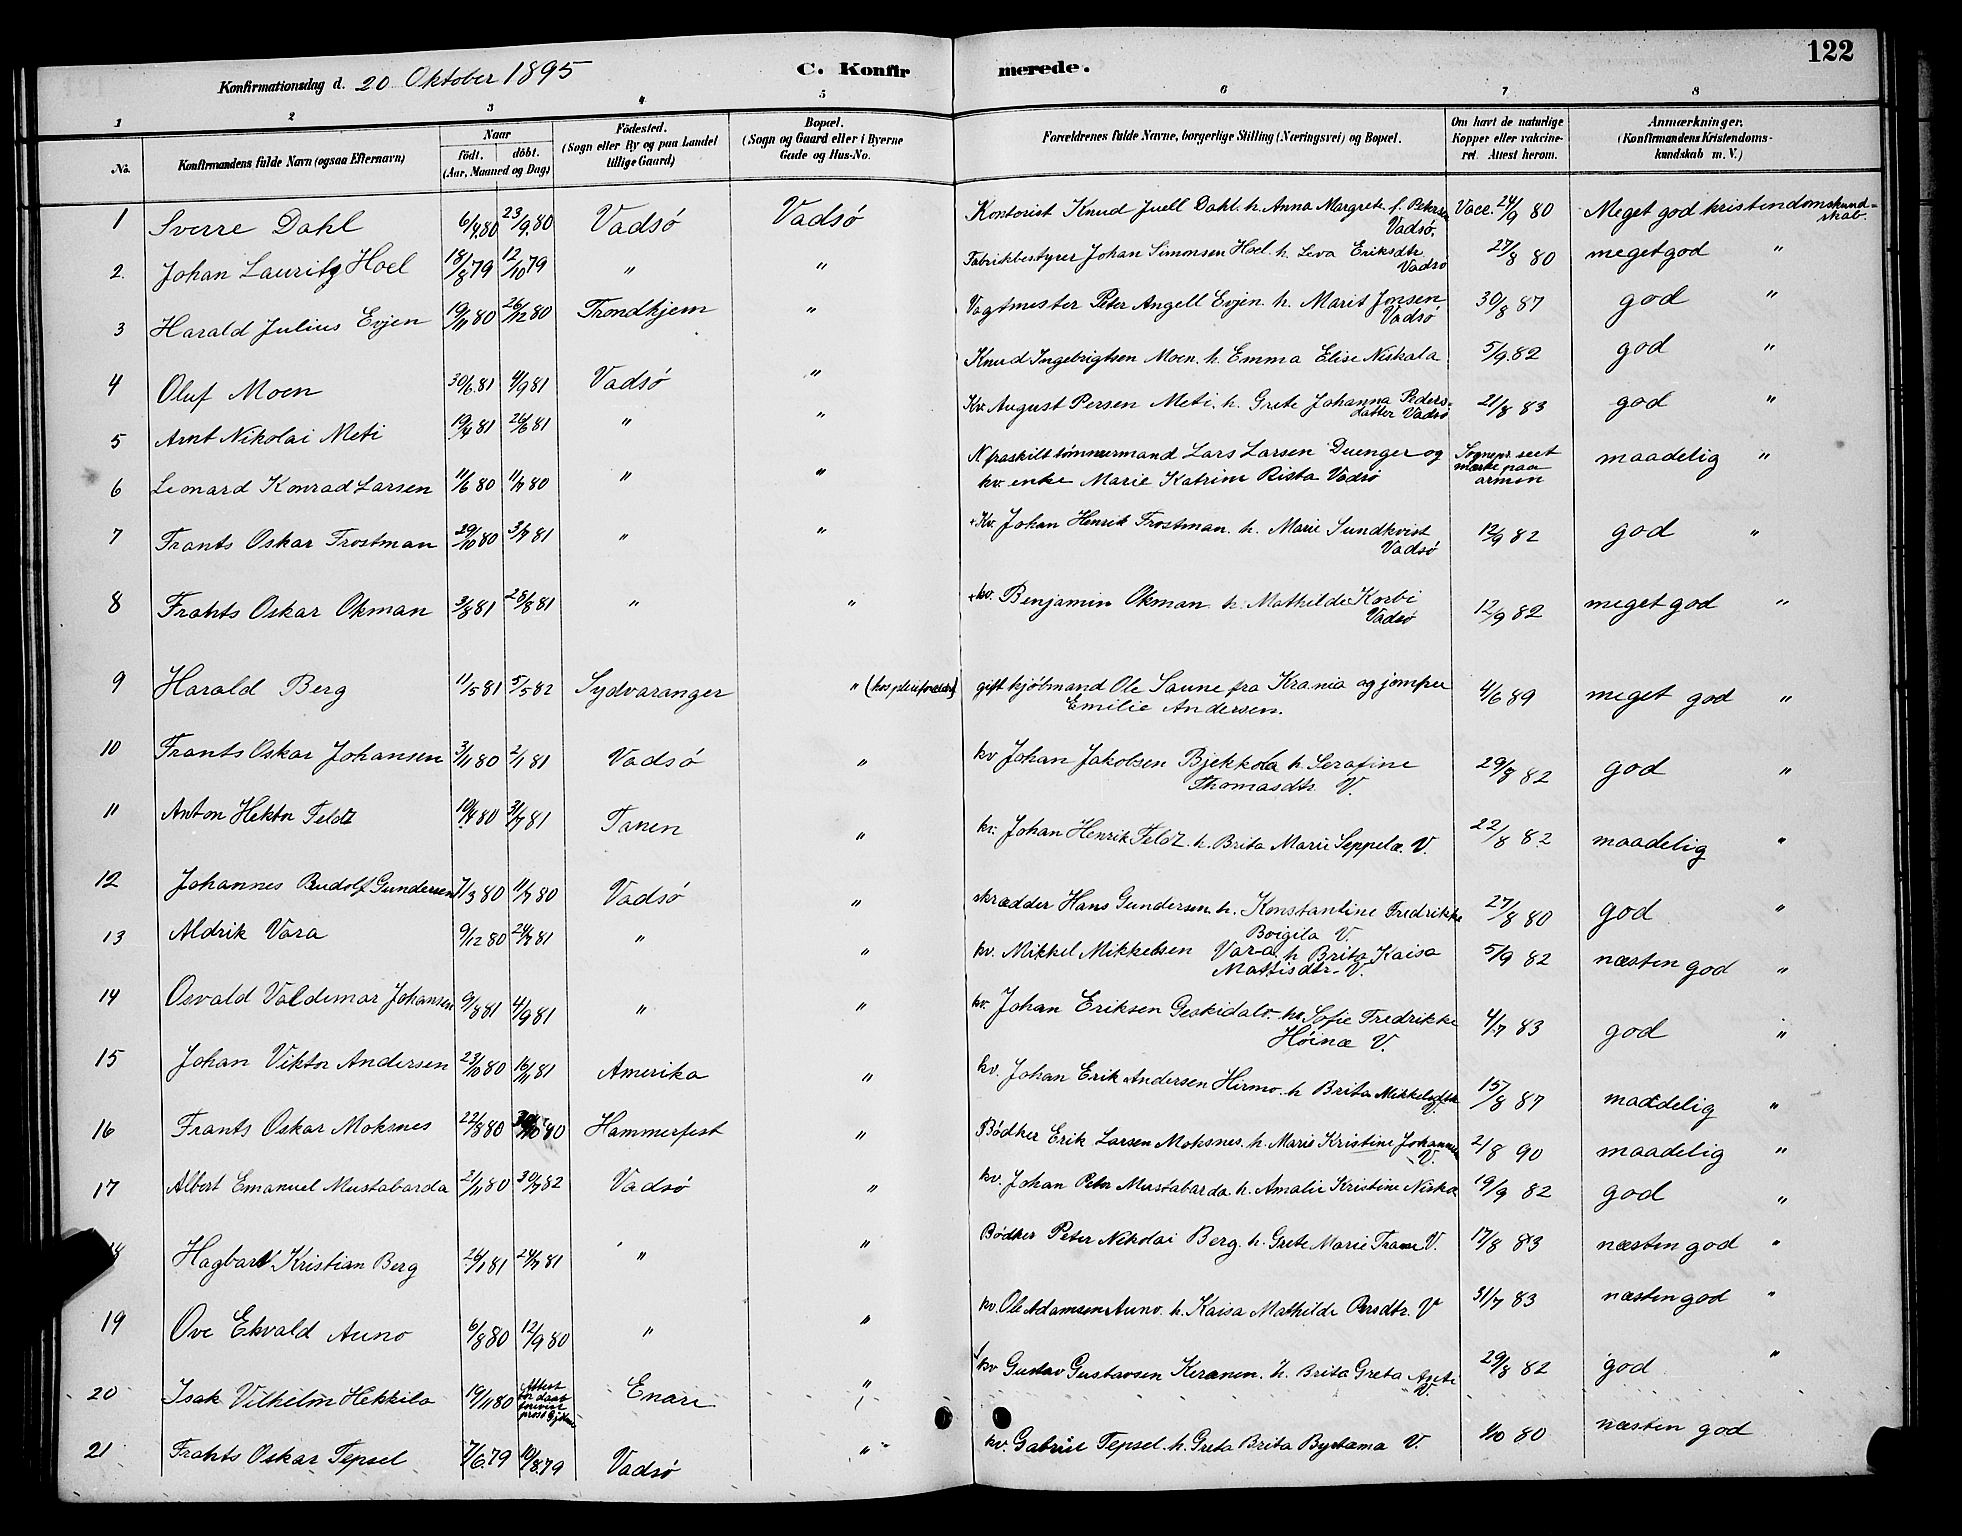 122
Konfirmationsdag d. 20 Oktober 1895 C. Konfirmerede.
1 2 3 4 5 6 7 8
No. Konfirmandens fulde Navn (ogsaa Efternavn) Naar født. døbt. (Aar, Maaned og Dag) Fødested. (Sogn eller By og paa Landet tillige Gaard) Bopæl. (Sogn og Gaard eller i Byerne Gade og Hus-No. Forældrenes fulde Navne, borgerlige Stilling (Næringsvei) og Bopæl. Om havt de naturlige Kopper eller vakcineret. Attest herom. Anmærkninger, (Konfirmandens Kristendomskundskab m. V.)
1 Sverre Dahl 6/4 80 23/9 80 Vadsø Vadsø Kontorist Knud Juell Dahl. h. Anna Margrete f. Petersen Vadsø. Vacc. 24/9 80 Meget god kristendomskundskab.
2. Johan Lauritz Hoel 18/8 79 12/10 79 " " Fabrikbestyrer Johan Simonsen Hoel. h. Leva Eriksdtr. Vadsø 27/8 80 meget god "
3 Harald Julius Evjen 19/11 80 26/12 80 Trondhjem " Vagtmester Peter Angell Evjen. h. Marit Jonsen Vadsø 30/8 87 god "
4 Oluf Moen 30/6 81 4/9 81 Vadsø " Knud Ingebrigtsen Moen. h. Emma Elise Niskala 5/9 82 god "
5 Arnt Nikolai Meti 19/4 81 26/6 81 " " Kv. August Persen Meti. h. Grete Johanna Pedersdatter Vadsø 21/8 83 god "
6 Leonard Konrad Larsen 11/6 80 11/7 80 " " N fraskilt tømmermand Lars Larsen Duenger og kv. enke Marie Katrine Rista Vadsø Sognepr. seet mærke paa armen maadelig "
7 Frants Oskar Frostman 29/10 80 3/7 81 " " Kv. Johan Henrik Frostman. h. Marie Sundkvist Vadsø 12/9 82 god "
8 Frants Oskar Okman 3/8 81 28/8 81 " " kv. Benjamin Okman. h. Mathilde Korbi Vadsø 12/9 82 meget god "
9 Harald Berg 11/5 81 5/5 82 Sydvaranger " (hos pleieforældre) gift kjøbmand Ole Saune fra Krania og jomfru Emilie Andersen. 4/6 89 meget god "
10 Frants Oskar Johansen 3/11 80 2/1 81 Vadsø " kv Johan Jakobsen Bjekkola h. Serafine Thomasdtr. V. 29/8 82 god "
11 Anton Hektor Feldt 19/4 80 31/7 81 Tanen " kv. Johan Henrik Feldt. h. Brita Marie Seppela. V. 22/8 82 maadelig "
12 Johannes Rudolf Gundersen 7/3 80 11/7 80 Vadsø " skrædder Hans Gundersen. h. Konstantine Fredrikke Boigila V. 27/8 80 god "
13 Aldrik Vara 9/12 80 24/7 81 " " kv. Mikkel Mikkelsen Vara. h Brita Kaisa Mattisdtr. V. 5/9 82 næsten god "
14 Osvald Valdemar Johansen 9/8 81 4/9 81 " " kv. Johan Eriksen Geskidalo. h. Sofie Fredrikke Høinæ V. 4/7 83 god "
15 Johan Viktor Andersen 23/10 80 16/11 81 Amerika " kv. Johan Erik Andersen Hirmo. h Brita Mikkelsdtr V. 15/8 87 maadelig "
16 Frants Oskar Moksnes 22/8 80 80 Hammerfest " Bødker Erik Larsen Moksnes. h. Marie Kristine Johannsen V. 2/8 90 maadelig "
17 Albert Emanuel Mustabarda 21/11 80 30/7 82 Vadsø " kv. Johan Peter Mustabarda h. Amalie Kristine Niska 19/9 82 god "
18 Hagbart Kristian Berg 26/1 81 24/7 81 " " Bødker Peter Nikolai Berg. h. Grete Marie Trane V. 17/8 83 næsten god "
19 Ove Ekvald Auno 6/8 80 12/9 80 " " kv. Ole Adamsen Auno. h. Kaisa Mathilde Persdtr. V 31/7 83 næsten god "
20 Isak Vilhelm Hekkila 19/11 80 Attest Enare " kv Gustav Gustavsen Keranen. h. Brita Greta V. 29/8 82 god "
21 Frants Oskar Tepsel 7/6 79 10/8 79 Vadsø " kv. Gabriel Tepsel. h. Greta Brita Byrtama V. 1/10 80 næsten god